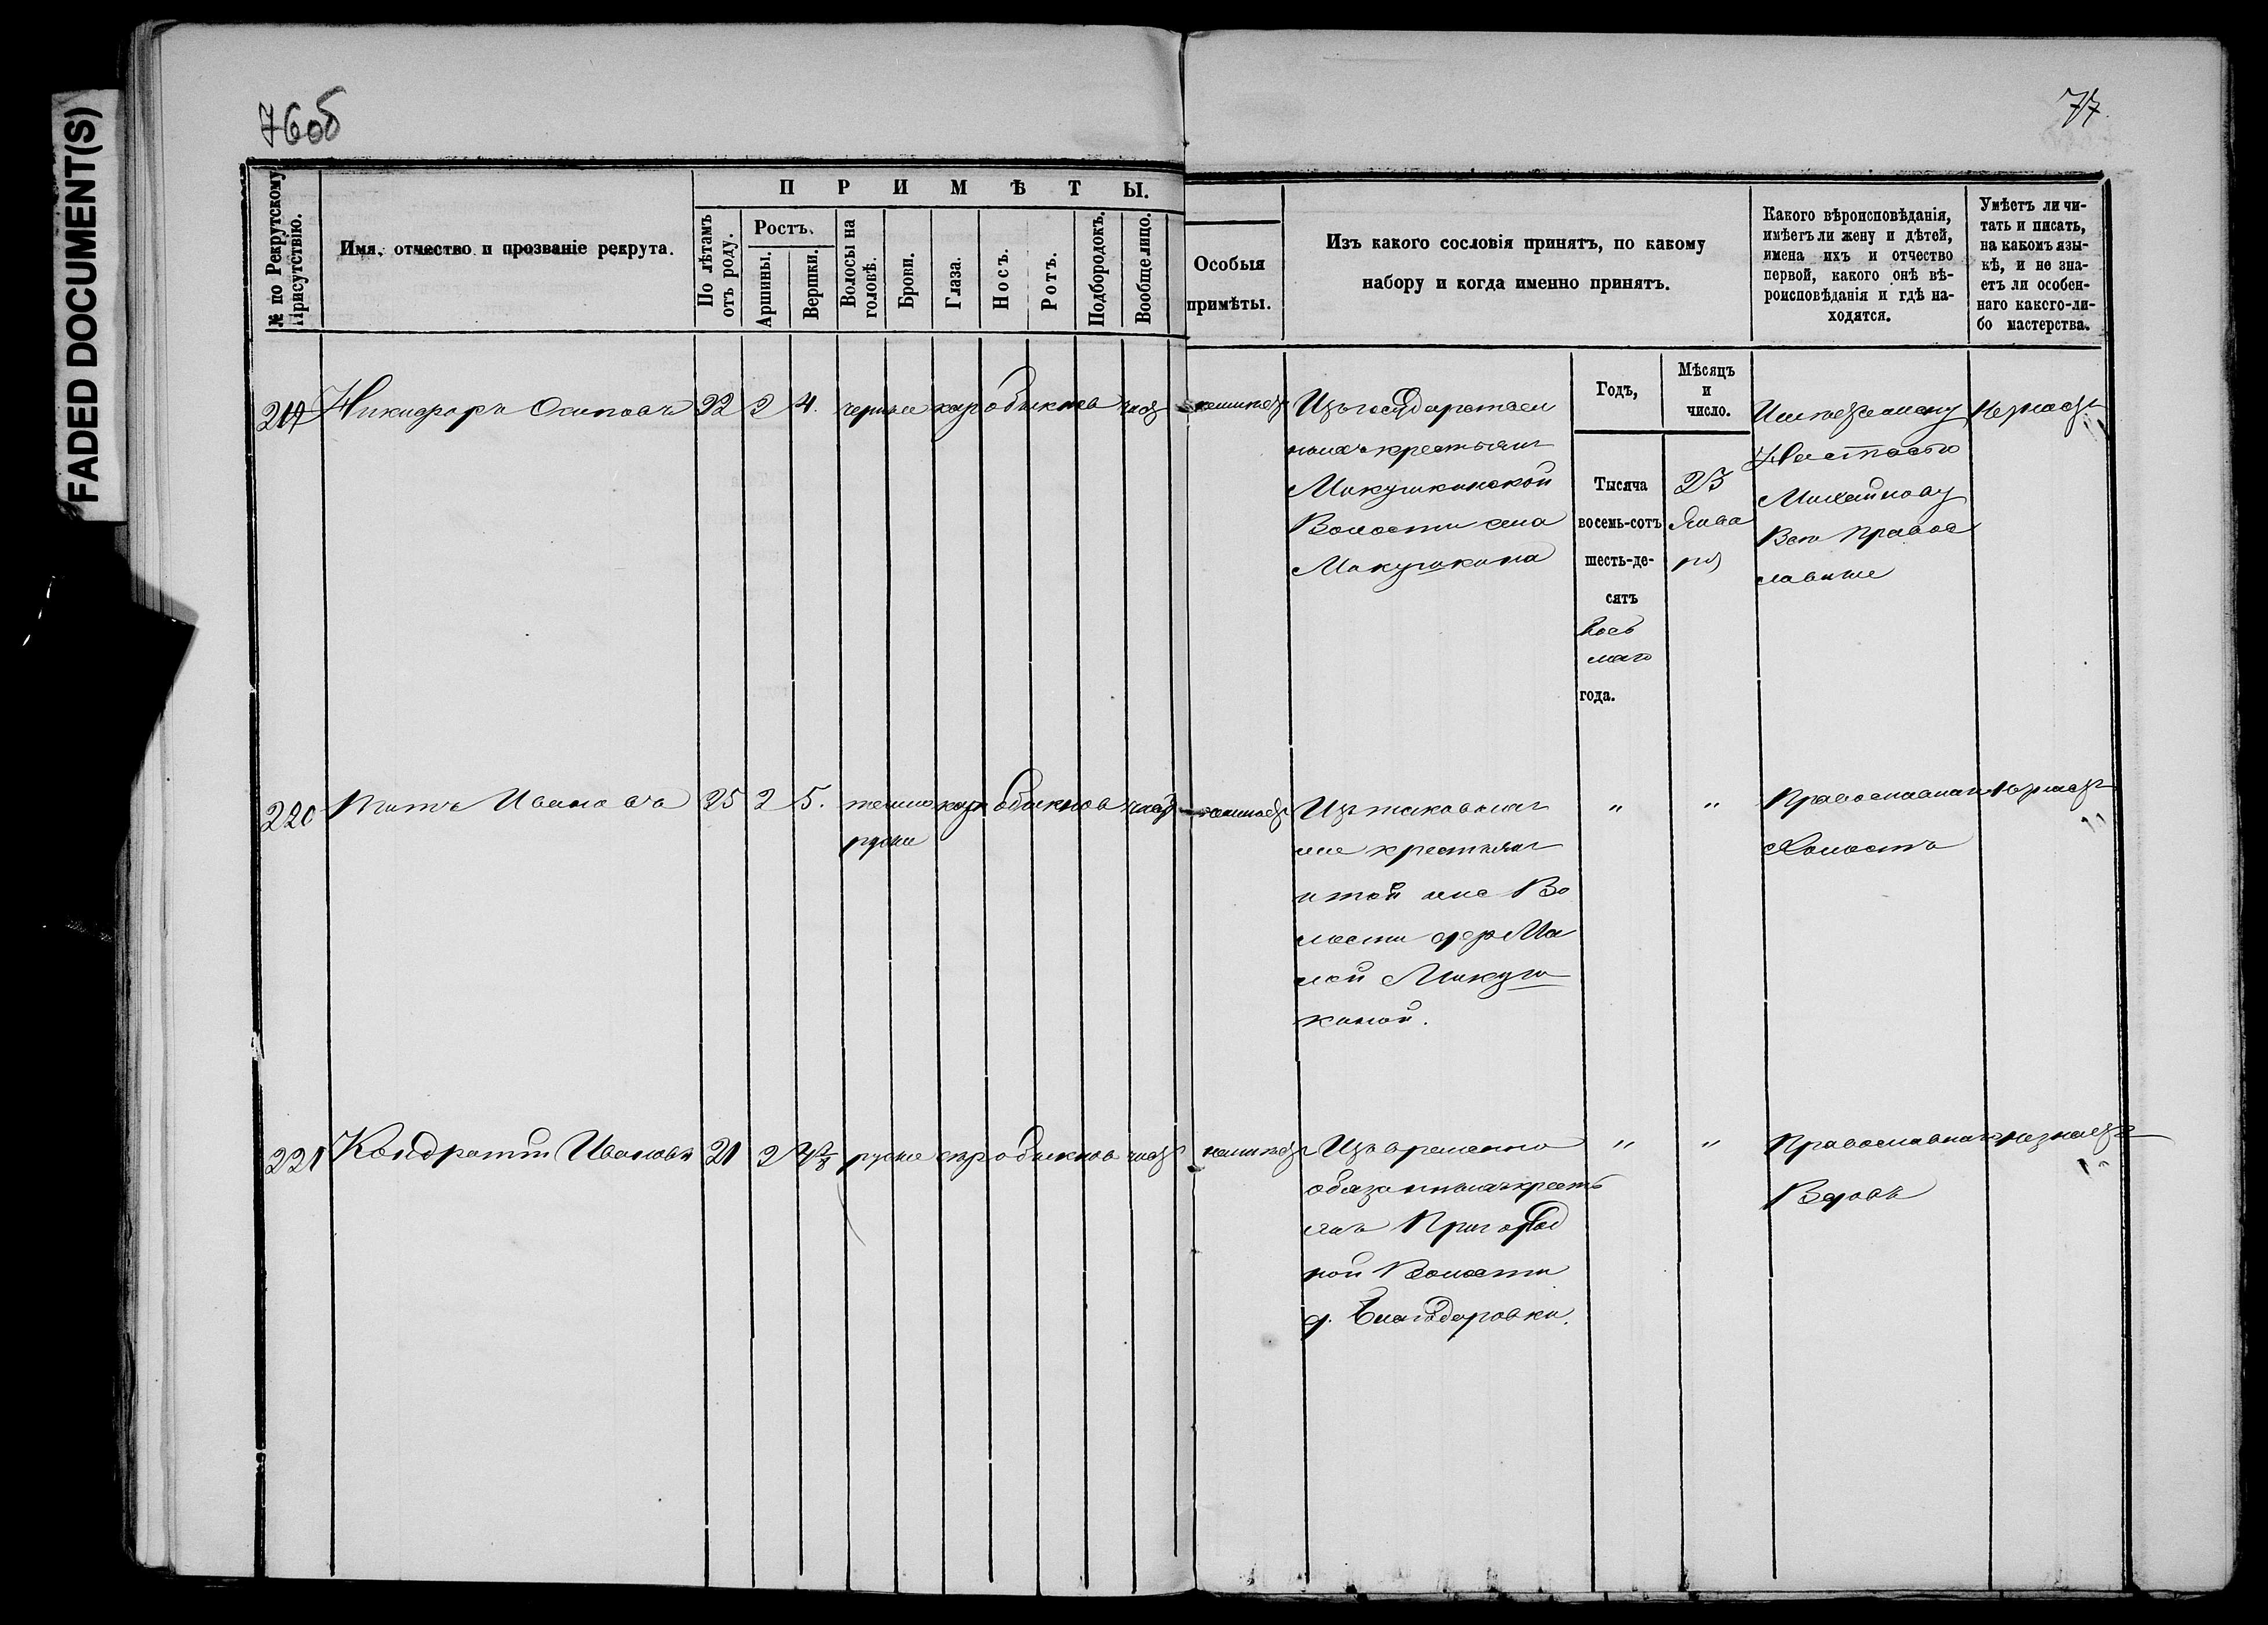 FADED DOCUMENT(S)
76об
77.
№ по Рекрутскому
Присутствію.
Имя, отчество и прозваніе рекрута.
ПРИМѢТЫ.
По лѣтамъ
отъ роду.
Ростъ.
Аршины.
Вершки.
Волосы на
головѣ.
Брови.
Глаза.
Носъ.
Ротъ.
Подбородокъ.
Вообще лицо.
Особыя
примѣты.
Изъ какого сословія принятъ, по какому
набору и когда именно принятъ.
Какого вѣроисповѣданія,
имѣетъ ли жену и дѣтей,
имена ихъ и отчество
первой, какого онѣ вѣ-
роисповѣданія и гдѣ на-
ходятся.
Умѣетъ ли чи-
тать и писать,
на какомъ язы-
кѣ, и не зна-
етъ ли особен-
наго какого-ли-
бо мастерства.
Годъ,
Мѣсяцъ
и
число.
219 Никифоръ Осиповъ 22 2 4. черные кар обыкнов чист
Изъ государствен
ныхъ крестьянъ
Микушкинской
Волости села
Микушкина
Тысяча
восемь-сотъ
шесть-де-
сятъ
вось
маго
года.
23
Янва
ря
Имѣетъ жену
Настасью
Михайлову
Всѣ правос
лавные
220 Титъ Ивановъ 25 2 5. темно кар обыкнов чист
русые
Изъ таковыхъ
же крестьянъ
и той же Во
лости дер Ма
лой Микуш
киной.
" "
Православнаго
Холостъ
221 Кондратій Ивановъ 21 2 4 2/8 русые сѣр обыкнов чист
Изъ временно
обязанныхъ кресть
янъ Пригород
ной Волости
д. Благодаровки.
" "
Православнаго незнаетъ
Вдовъ